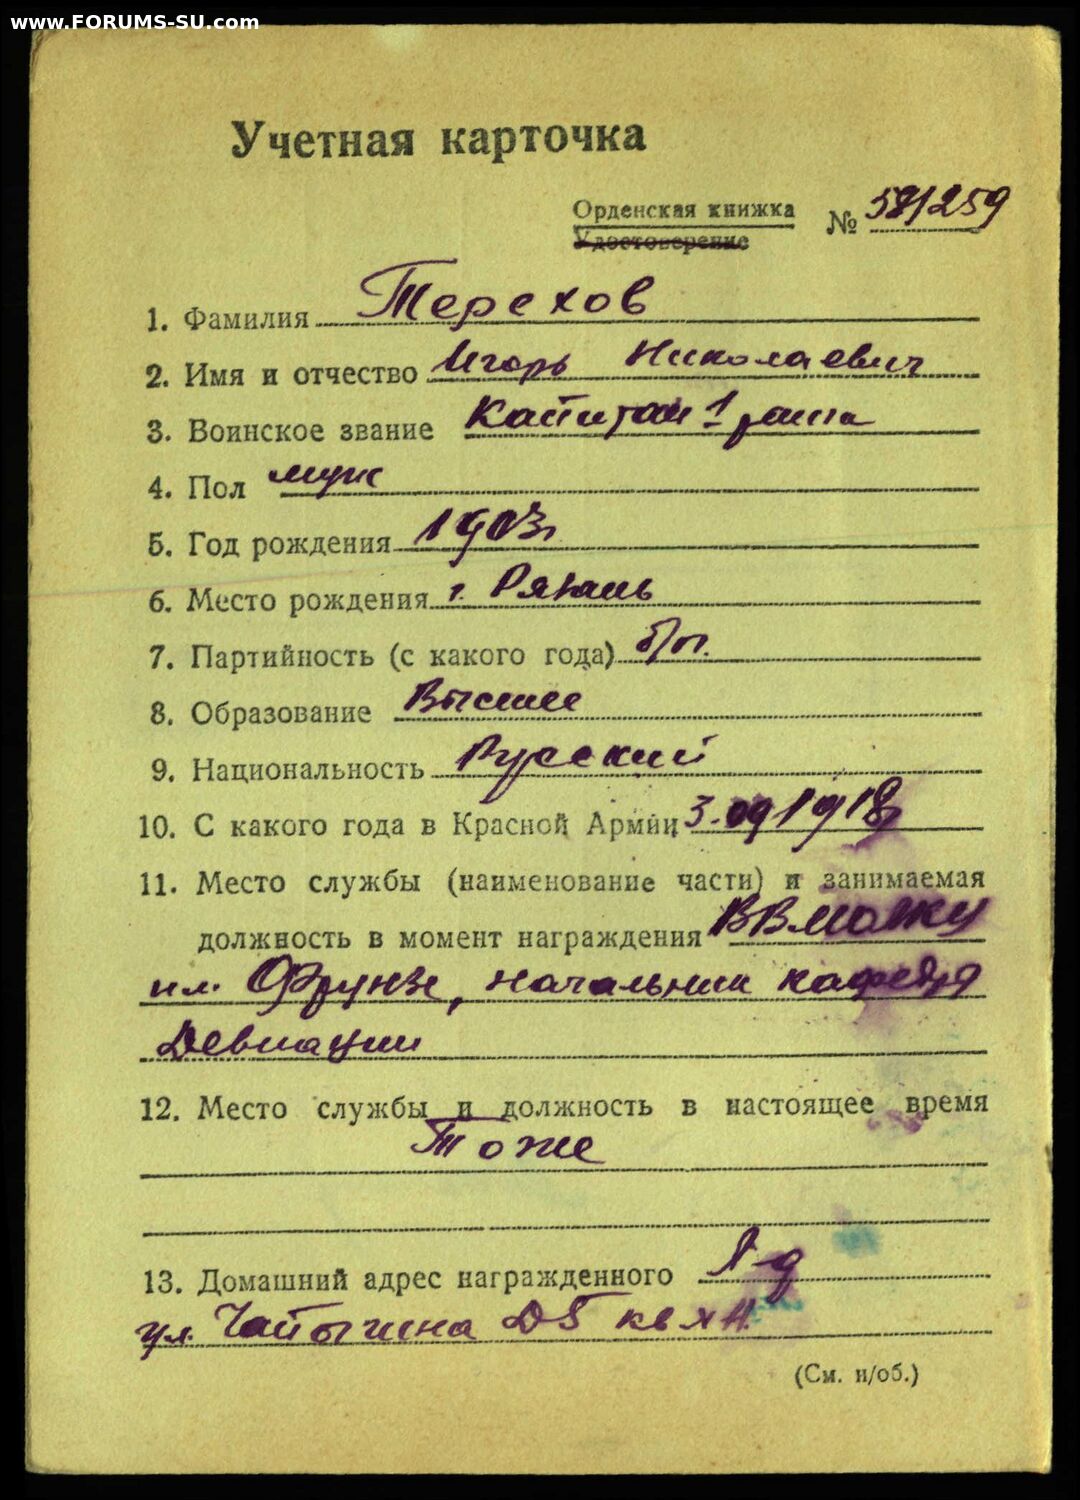 www.FORUMS-SU.com
Учетная карточка
Орденская книжка № 581259
Удостоверение
1. Фамилия Терехов
2. Имя и отчество Игорь Николаевич
3. Воинское звание Капитан 1 ранга
4. Пол муж
5. Год рождения 1903г
6. Место рождения г. Рязань
7. Партийность (с какого года) б/п.
8. Образование Высшее
9. Национальность Русский
10. С какого года в Красной Армии 3.09 1918г
11. Место службы (наименование части) и занимаемая
должность в момент награждения
им. Фрунзе, начальник кафедра
Девиации
12. Место службы и должность в настоящее время
Тоже
13. Домашний адрес награжденного Л-д
ул. Чапыгина Д5 кв
(См. н/об.)